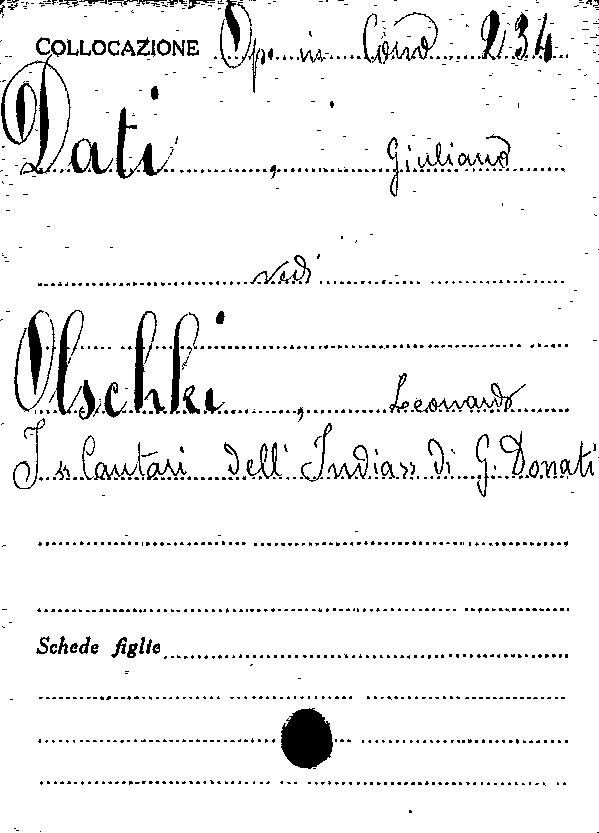 COLLOCAZIONE Op. in Cons 234
Dati, Giuliano
vedi
Olschki, Leonardo
I "Cantari dell'India" di G. Donati
Schede figlie